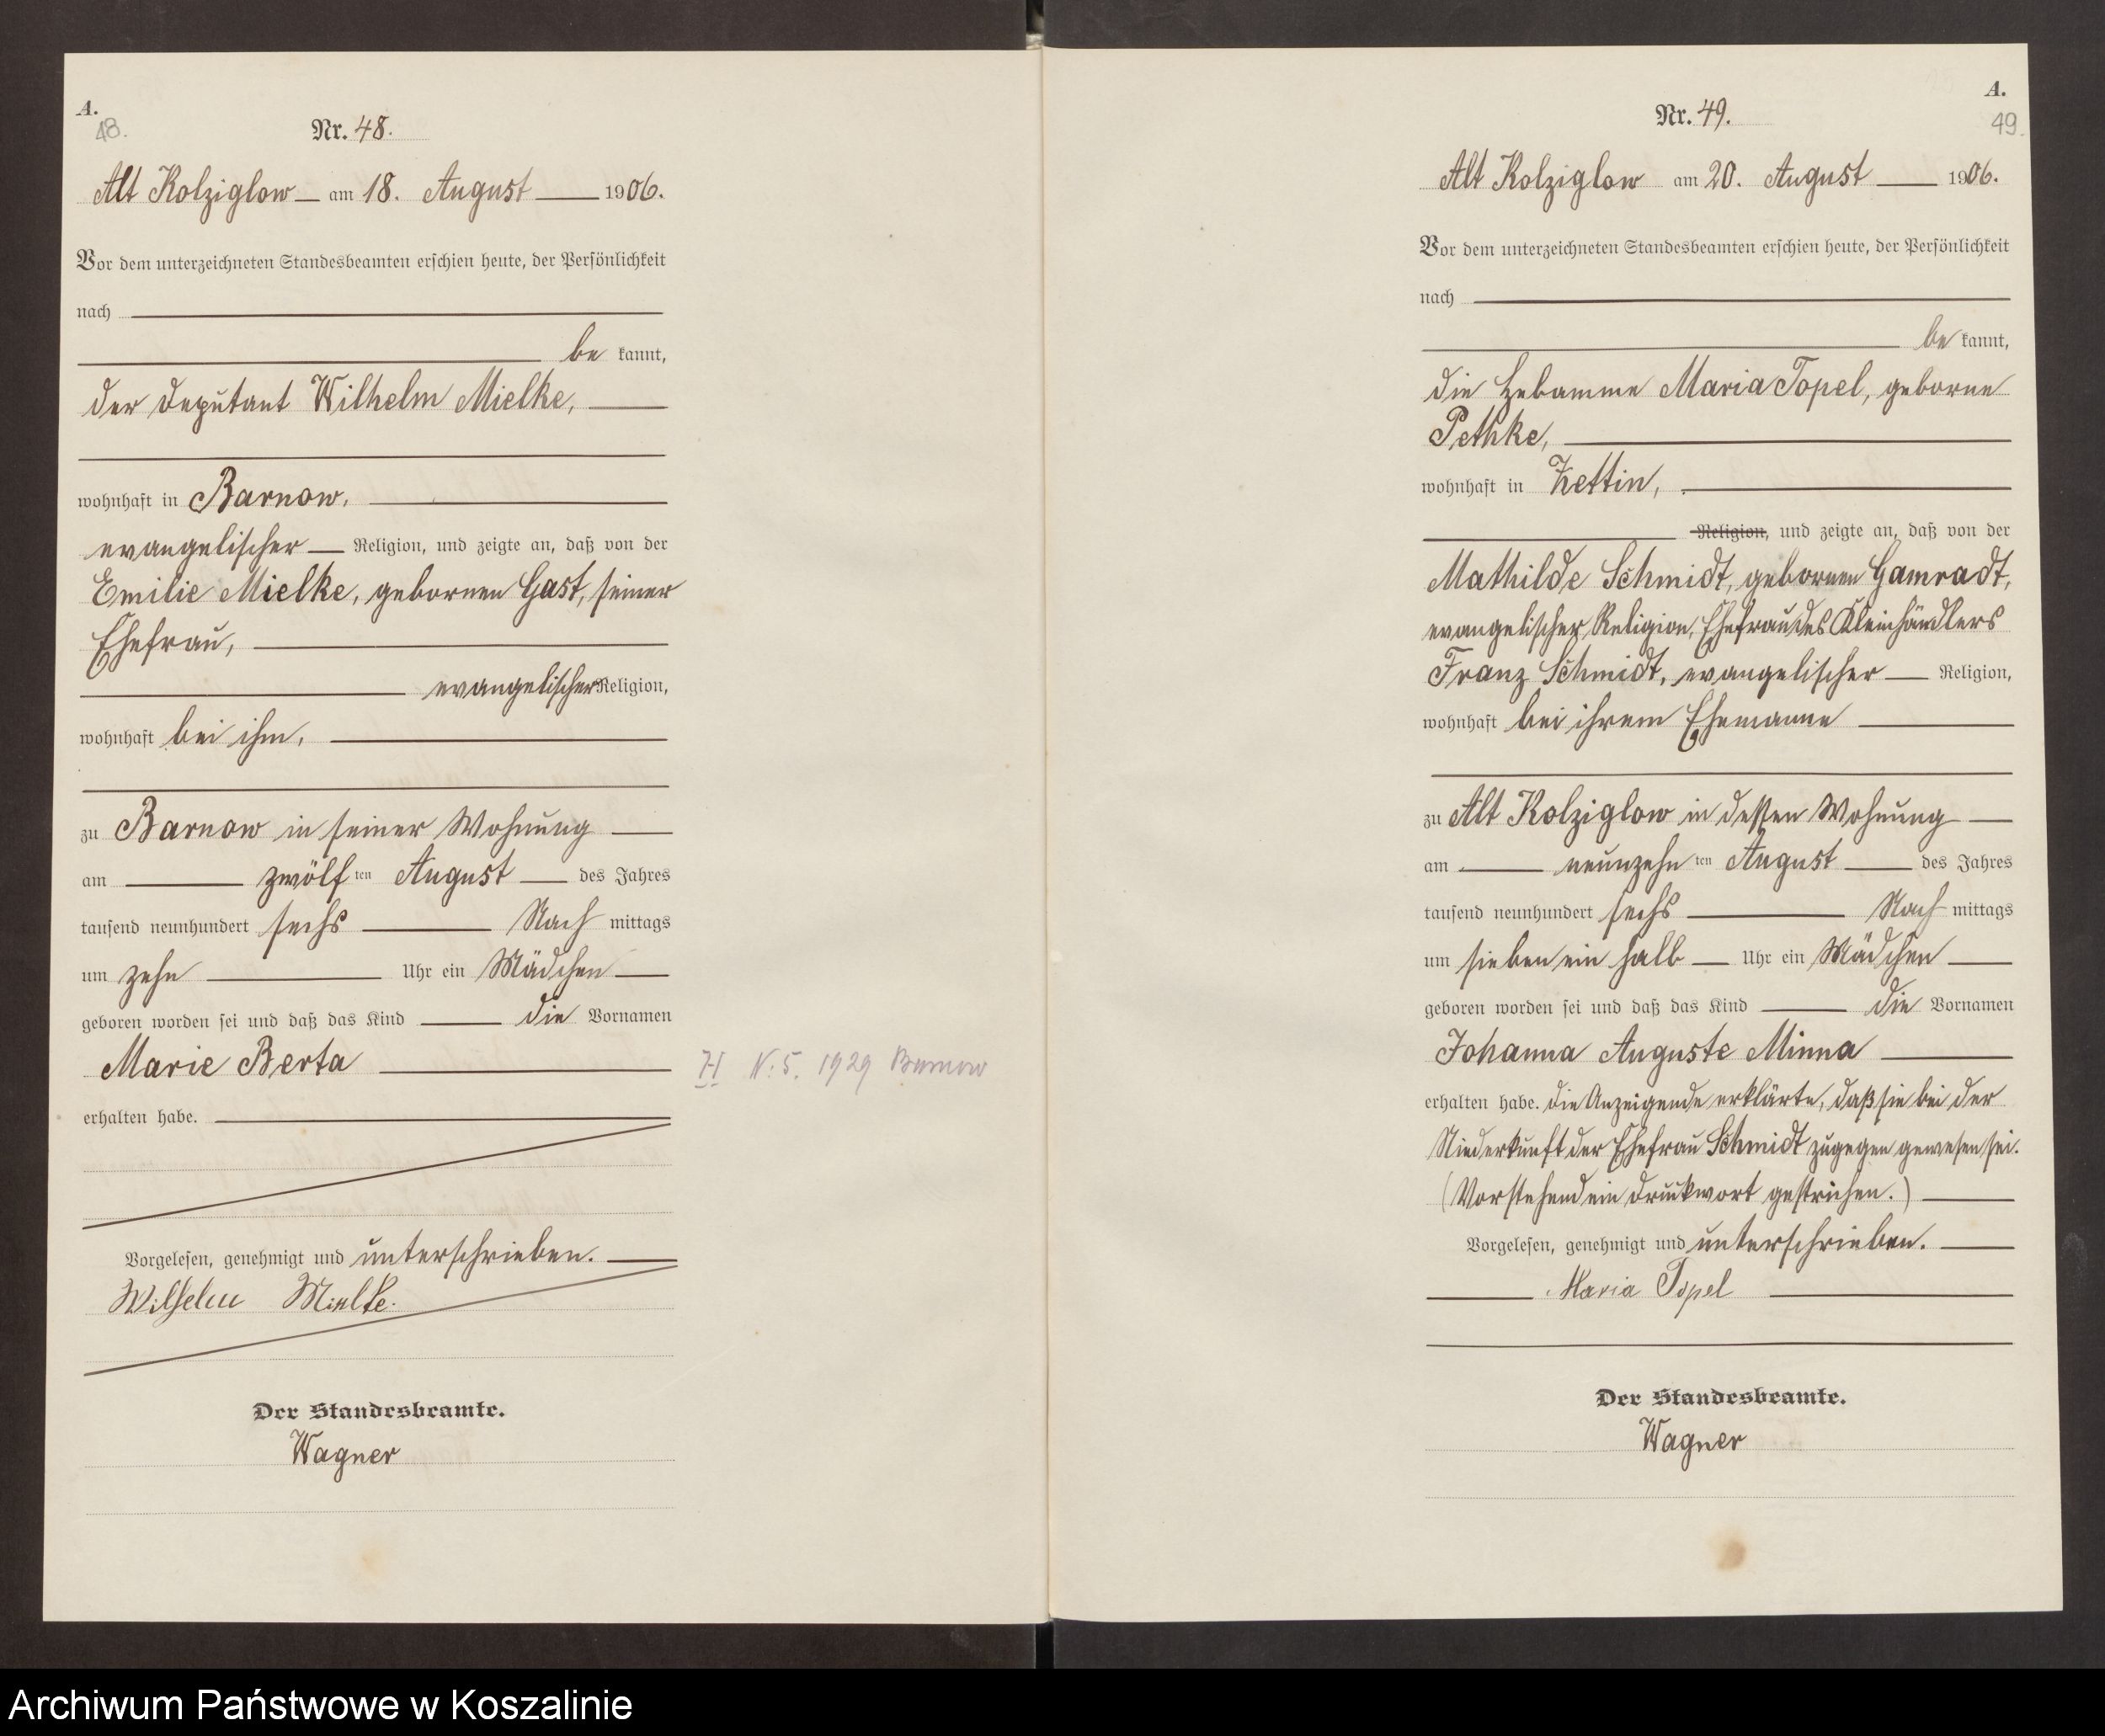 A.
48.
Nr. 48.
Alt Kolziglow am 18. August 1906.
Vor dem unterzeichneten Standesbeamten erschien heute, der Persönlichkeit
nach
be kannt,
der Deputant Wilhelm Mielke,
wohnhaft in Barnow,
evangelischer Religion, und zeigte an, daß von der
Emilie Mielke, gebornen Gast, seiner
Ehefrau,
evangelischer Religion,
wohnhaft bei ihm,
zu Barnow in seiner Wohnung
am zwölf ten August des Jahres
tausend neunhundert sechs Nach mittags
um zehn Uhr ein Mädchen
geboren worden sei und daß das Kind die Vornamen
Marie Berta
H N. 5. 1929 Barnow
erhalten habe.
Vorgelesen, genehmigt und unterschrieben.
Wilhelm Mielke.
Der Standesbeamte.
Wagner
A.
49.
Nr. 49.
Alt Kolziglow am 20. August 1906.
Vor dem unterzeichneten Standesbeamten erschien heute, der Persönlichkeit
nach
be kannt,
die Hebamme Maria Topel, geborne
Pethke,
wohnhaft in Zettin,
Religion, und zeigte an, daß von der
Mathilde Schmidt, gebornen Gamradt,
evangelischer Religion, Ehefrau des Kleinhändlers
Franz Schmidt, evangelischer Religion,
wohnhaft bei ihrem Ehemanne
zu Alt Kolziglow in dessen Wohnung
am neunzehn ten August des Jahres
tausend neunhundert sechs Nach mittags
um sieben ein halb Uhr ein Mädchen
geboren worden sei und daß das Kind die Vornamen
Johanna Auguste Minna
erhalten habe. Die Anzeigende erklärte, daß sie bei der
Niederkunft der Ehefrau Schmidt zugegen gewesen sei.
(Vorstehend ein Druckwort gestrichen.)
Vorgelesen, genehmigt und unterschrieben.
Maria Topel
Der Standesbeamte.
Wagner
Archiwum Państwowe w Koszalinie